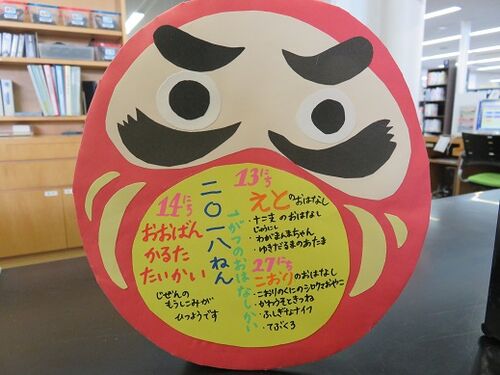 二〇一八ねん
1がつのおはなしかい
13にち
えとのおはなし
・十二支のおはなし
じゅうにし
・わがまんまちゃん
・ゆきだるまのあたま
27にち
こおりのおはなし
・こおりのくにのシロクマおやこ
・かわうそときつね
・ふしぎなナイフ
・てぶくろ
14にち
おおばん
かるた
たいかい
じぜんの
もうしこみが
ひつようです